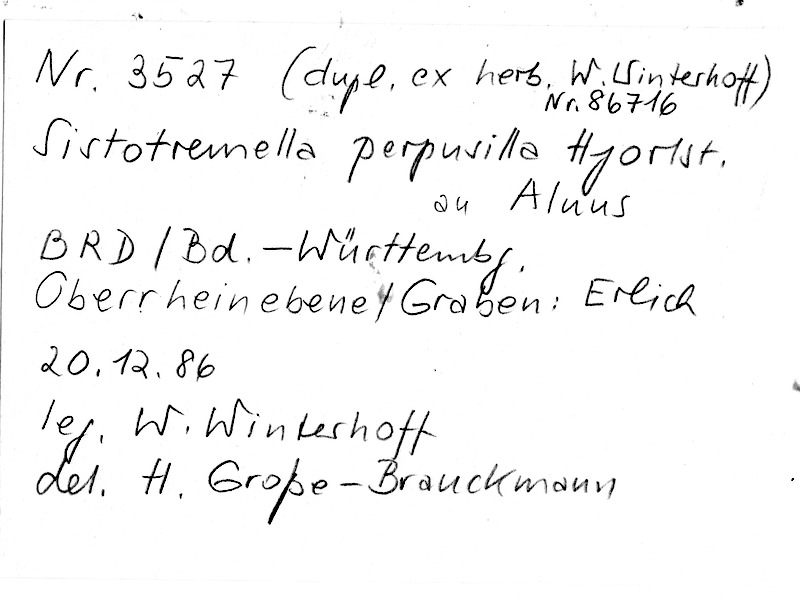 Nr. 3527 (dupl. ex herb. W. Winterhoff)
Nr. 86716
Sistotremella perpusilla Hjortst.
an Alnus
BRD / Bd.-Württembg.
Oberrheinebene / Graben: Erlich
20.12.86
leg. W. Winterhoff
det. H. Große-Brauckmann